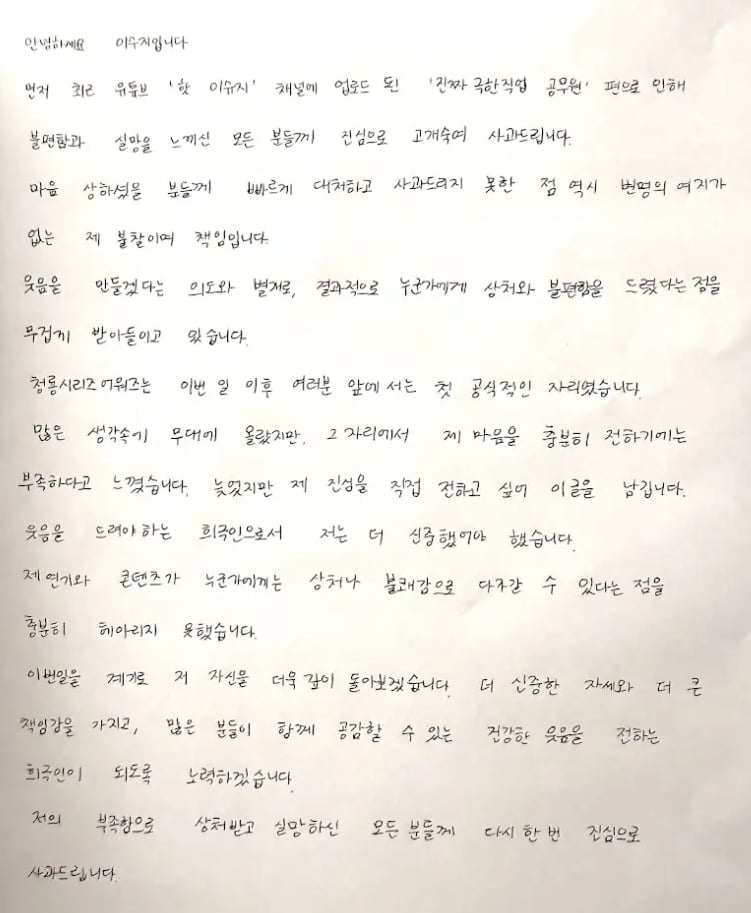 안녕하세요 이수지입니다
먼저 최근 유튜브 '핫 이슈지' 채널에 업로드 된 '진짜 극한직업 공무원' 편으로 인해
불편함과 실망을 느끼신 모든 분들께 진심으로 고개숙여 사과드립니다.
마음 상하셨을 분들께 빠르게 대처하고 사과드리지 못한 점 역시 변명의 여지가
없는 제 불찰이며 책임입니다.
웃음을 만들겠다는 의도와 별개로, 결과적으로 누군가에게 상처와 불편함을 드렸다는 점을
무겁게 받아들이고 있습니다.
청룡시리즈어워즈는 이번 일 이후 여러분 앞에 서는 첫 공식적인 자리였습니다.
많은 생각속에 무대에 올랐지만, 그 자리에서 제 마음을 충분히 전하기에는
부족하다고 느꼈습니다. 늦었지만 제 진심을 직접 전하고 싶어 이글을 남깁니다.
웃음을 드려야 하는 희극인으로서 저는 더 신중했어야 했습니다.
제 연기와 콘텐츠가 누군가에게는 상처나 불쾌감으로 다가갈 수 있다는 점을
충분히 헤아리지 못했습니다.
이번일을 계기로 저 자신을 더욱 깊이 돌아보겠습니다. 더 신중한 자세와 더 큰
책임감을 가지고, 많은 분들이 함께 공감할 수 있는 건강한 웃음을 전하는
희극인이 되도록 노력하겠습니다.
저의 부족함으로 상처받고 실망하신 모든 분들께 다시 한 번 진심으로
사과드립니다.